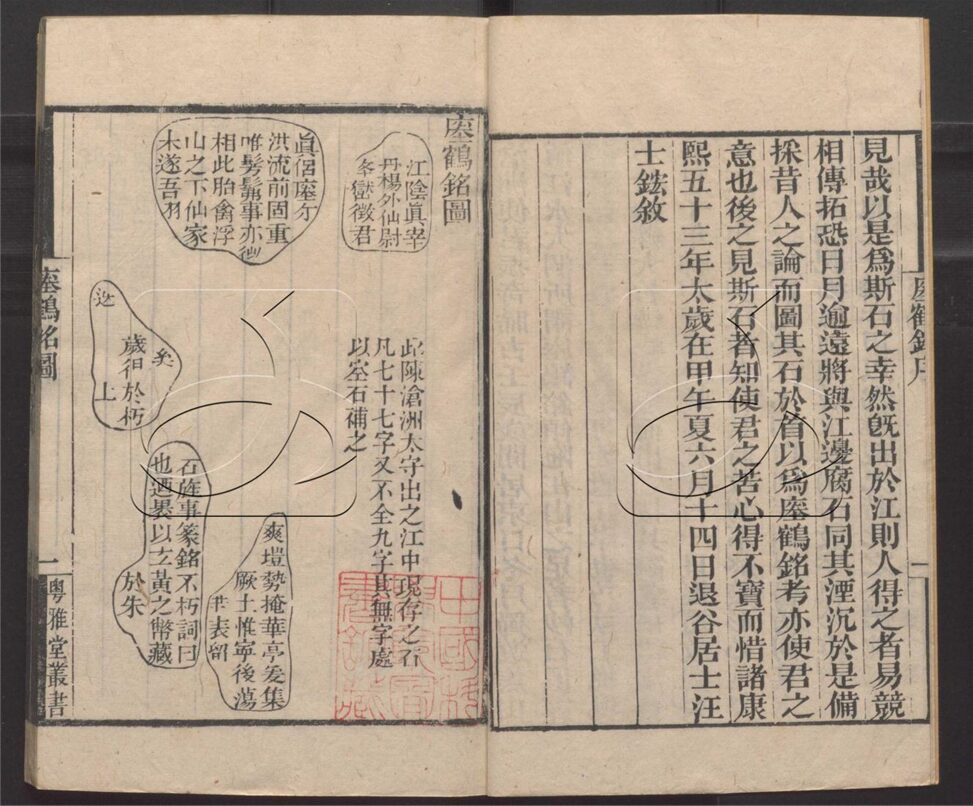 見哉以是爲斯石之幸然旣出於江則人得之者易競
相傳拓恐日月逾遠將與江邊腐石同其湮沉於是備
採昔人之論而圖其石於首以爲瘞鶴銘考亦使君之
意也後之見斯石者知使君之苦心得不寶而惜諸康
熙五十三年太歲在甲午夏六月十四日退谷居士汪
士鋐敘
瘞鶴銘序
一
瘞鶴銘圖
江陰眞宰
丹楊外仙尉
夅嶽徵君
眞侶瘞尔
洪流前固重
唯髣髴事亦㣲
相此胎禽浮
山之下仙家
未遂吾羽
此陳滄洲太守出之江中現存之石
凡七十七字又不全九字其無字處
以空石補之
矣
歲得於朽
上
迯
爽塏勢掩華亭爰集
厥土惟寧後蕩
丹表留
石旌事篆銘不朽詞曰
也廼裹以玄黃之幣藏
於朱
瘞鶴銘圖
一
粵雅堂叢書